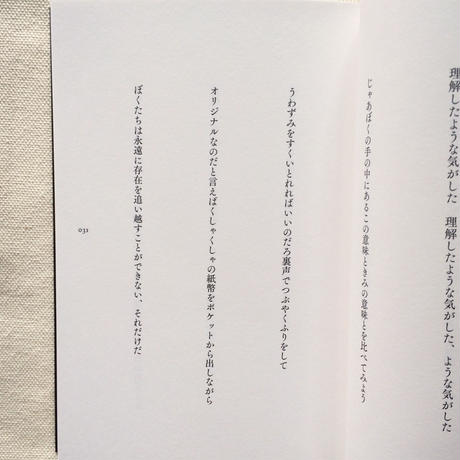 理解したような気がした　理解したような気がした、ような気がした
じゃあぼくの手の中にあるこの意味ときみの意味とを比べてみよう
うわずみをすくいとれればいいのだろ裏声でつぶやくふりをして
オリジナルなのだと言えばくしゃくしゃの紙幣をポケットから出しながら
ぼくたちは永遠に存在を追い越すことができない、それだけだ
031